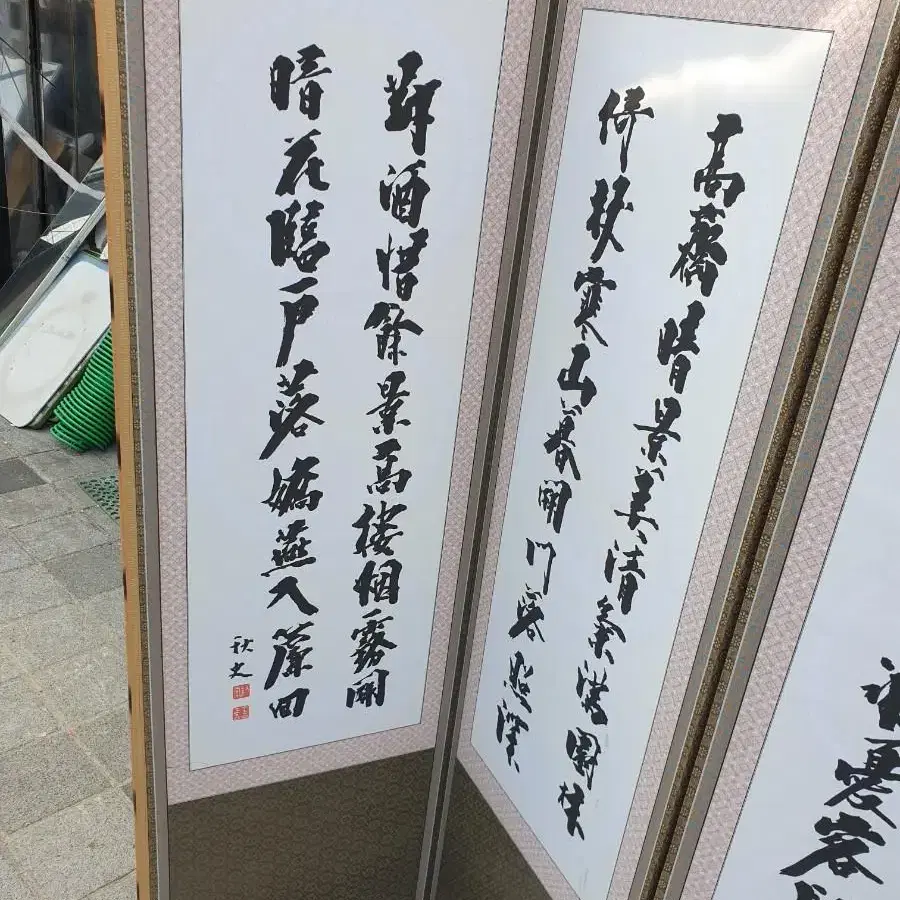 憂客
高齋晴景美清氣滿園林
倚杖寒山暮開門落照深
酒惜餘景高樓烟霧開
暗花臨戶落嬌燕入簾回
秋史